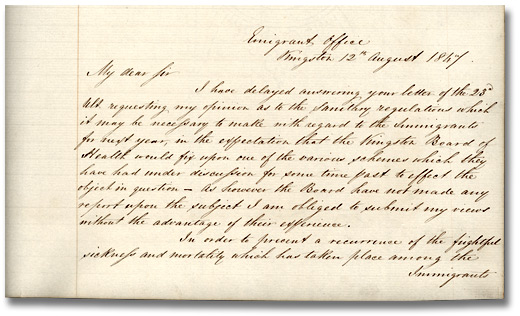 Emigrant Office
Kingston 12th August 1847
My dear Sir
I have delayed answering your letter of the 23d
Ult. requesting my opinion as to the Sanitary regulations which
it may be necessary to make with regard to the Immigrants
for next year, in the expectation that the Kingston Board of
Health would fix upon one of the various schemes which they
have had under discussion for some time past to effect the
object in question – As however the Board have not made any
report upon the subject I am obliged to submit my views
without the advantage of their experience.
In order to prevent a recurrence of the frightful
sickness and mortality which has taken place among the
Immigrants